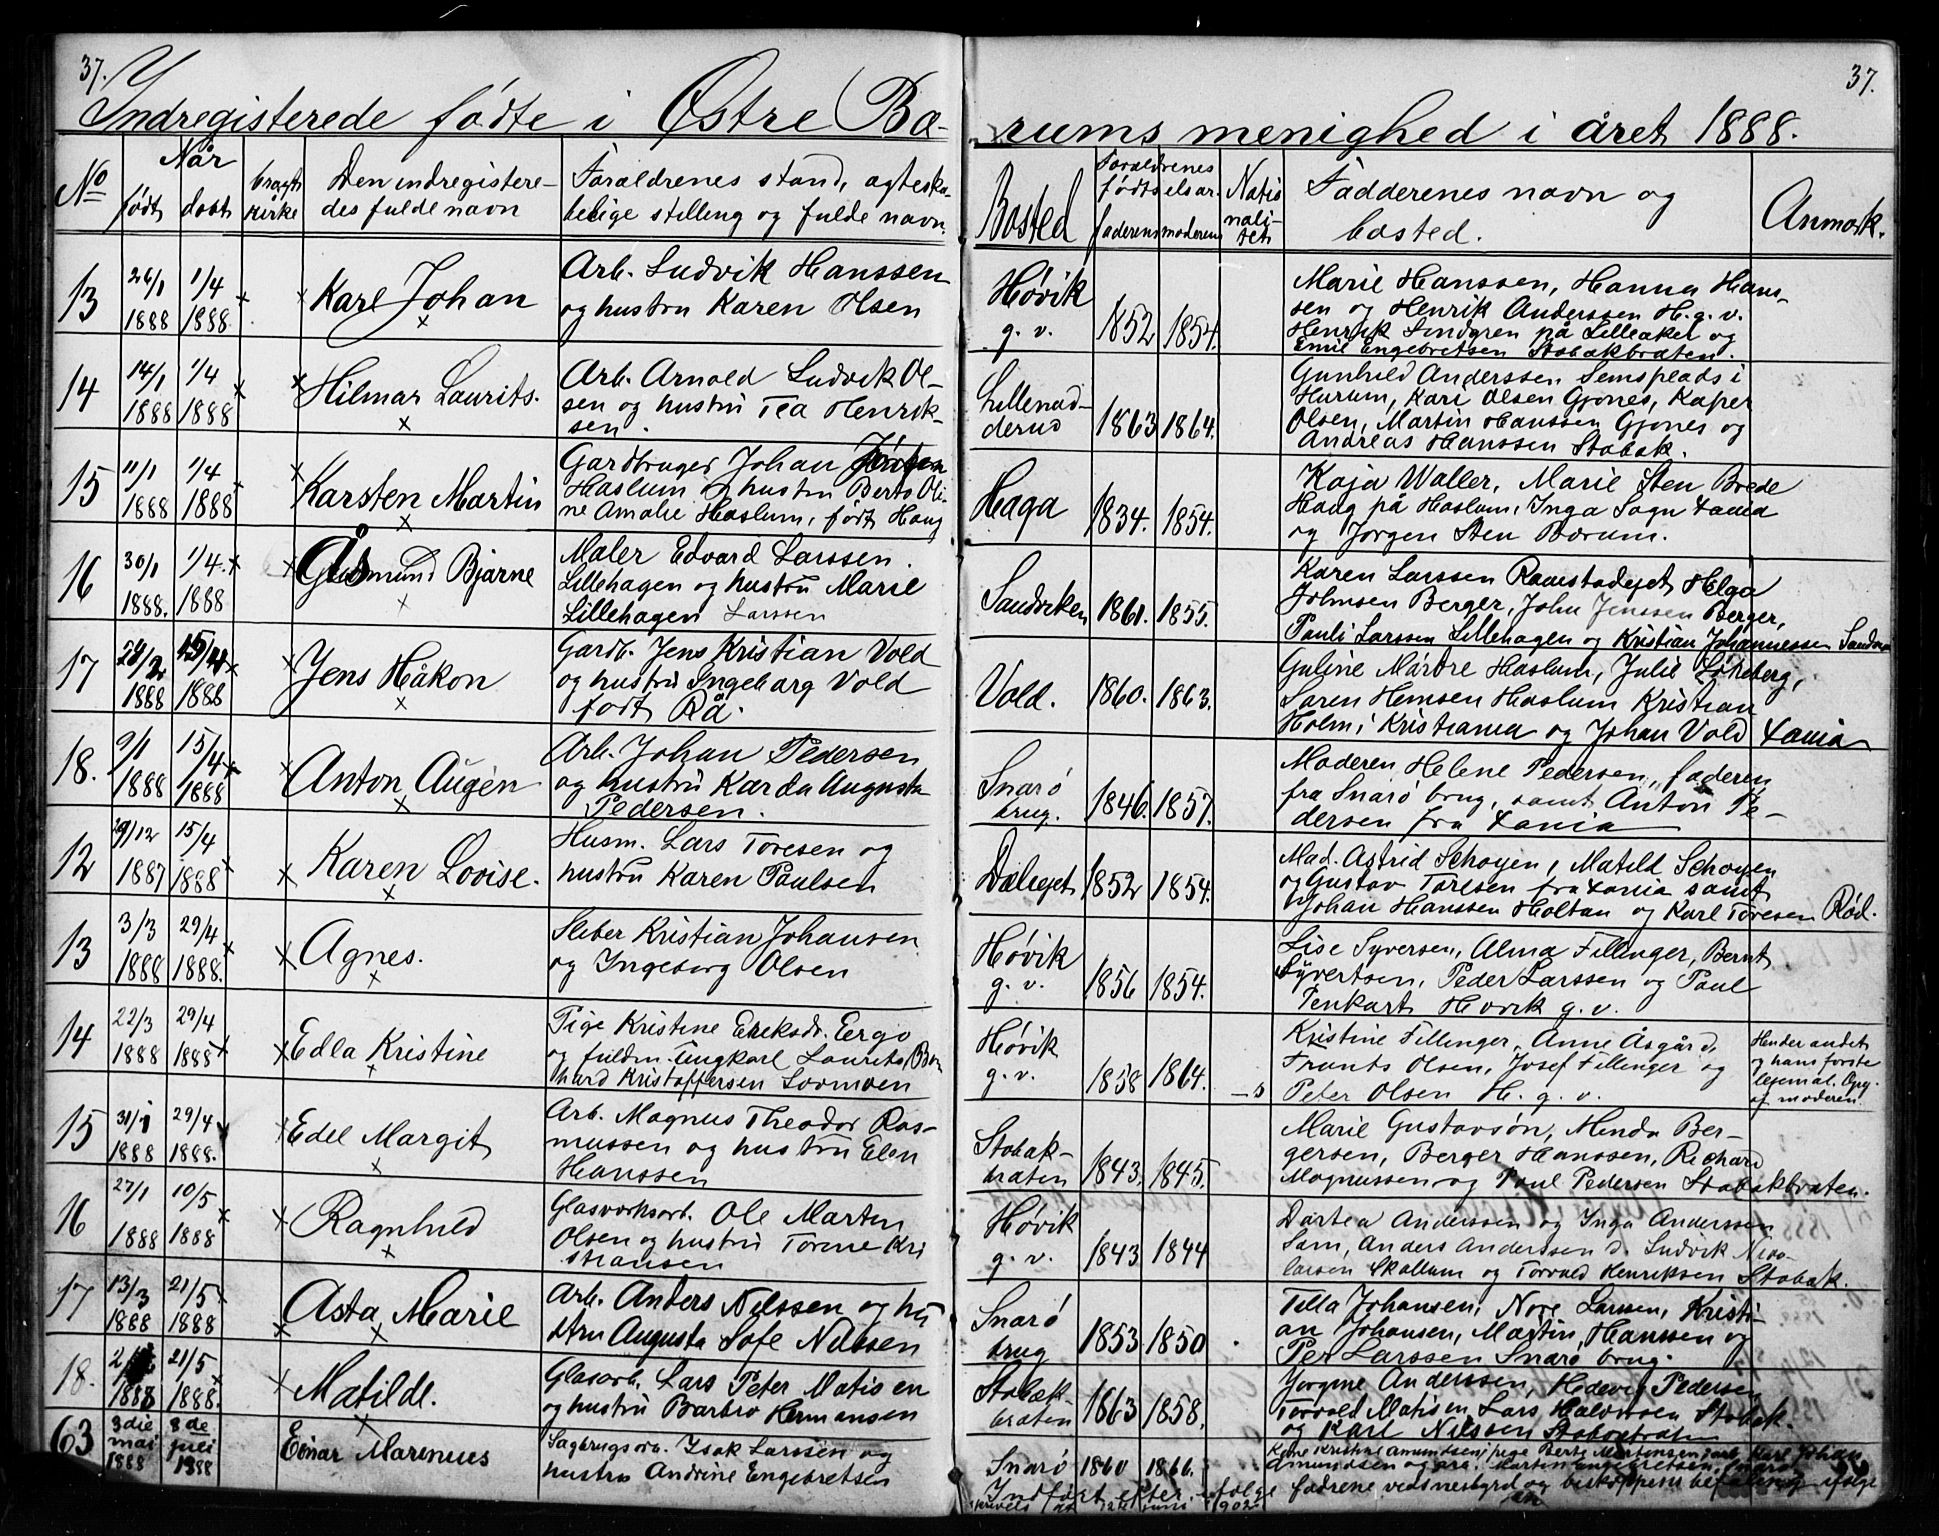 37.
37.
Indregisterede fødte i Østre Bæ- rums menighed i året 1888.
No
Når
født
døbt
bragt i kirke
Den indregistere-
des fulde navn
Forældrenes stand, ægteska-
belige stilling og fulde navn.
Bosted
Forældrenes
fødselsår.
faderens
moderens
Natio
nali-
tet
Fadderenes navn og
bosted.
Anmærk.
13
26/1
1888
1/4
1888
Karl Johan
Arb. Ludvik Hanssen
og hustru Karen Olsen
Høvik
g. v.
1852
1854.
Marie Hanssen, Hanna Hans-
sen og Henrik Anderssen H. g. v.
Henrik Lindgren på Lilleaker og
Emil Engebretsen Stabækbråten.
14
14/1
1888
1/4
1888
Hilmar Laurits.
Arb. Arnold Ludvik Ol-
sen og hustru Tea Henrik-
sen.
1863
1864.
Gunhild Anderssen Semsplads i
Hurum, Kari Olsen Gjones, Kaper
Olsen, Martin Hanssen Gjones og
Andreas Hanssen Stabæk.
15
11/1
1888
1/4
1888
Karsten Martin
Gardbruger Johan
Haslum og hustru Berta Oli
ne Amalie Haslum, født Haug
Haga
1834.
1854.
Kaja Waller, Marie Sten Brede
Haug på Haslum, Inga Sogn Xania
og Jørgen Sten Bærum.
16
30/1
1888.
1/4.
1888
Åsmund Bjarne
Maler Edvard Larssen.
Lillehagen og hustru Marie
Lillehagen Larssen
Sandviken
1861.
1855.
Karen Larssen Ramstadejet Helga
Johnsen Berger, John Jenssen Berger,
Pauli Larssen Lillehagen og Kristian Johannessen Sandv
17
28/2
1888
1888
Jens Håkon
Gardb. Jens Kristian Vold
og hustru Ingeborg Vold
født Rå.
Vold.
1860.
1863.
Guline Haslum, Julie Løkeberg,
Søren Hemsen Haslum Kristian
Holm i Kristiania og Johan Vold Xania
18.
9/1
1888
15/4
1888
Anton Augen
Arb. Johan Pedersen
og hustru Karda Augusta
Pedersen.
Snarø
brug.
1846.
1857.
Moderen Helene Pedersen, faderen
fra Snarø brug, samt Anton Pe-
dersen fra Xania
12
29/12
1887
15/4
1888
Karen Lovise.
Husm. Lars Toresen og
hustru Karen Paulsen
Dæliejet
1852
1854.
Mad. Astrid Schøyen, Matild Schøyen
og Gustav Toresen fra Xania samt
Johan Hanssen Holtan og Karl Toresen Rød.
13
3/3
1888
29/4
1888.
Agnes.
Sliber Kristian Johansen
og Ingeborg Olsen
Høvik
g. v.
1856
1854.
Lise Syversen, Alma Fillinger, Bernt
Syvertsen, Peder Larssen og Paul
Penkart Høvik g. v.
14
22/3
1888
29/4
1888
Edla Kristine
Pige Kristine Eriksdr. Ergo
og fuldm. Ungkarl Laurits Bern
hard Kristoffersen Sormoen
Høvik
g. v.
1858
1864.
Kristine Fillinger, Anne Åsgård,
Frants Olsen, Josef Fillinger og
Peter Olsen H. g. v.
Hendes andet
og hans første
lejemål. Opg.
af moderen.
15
31/1
1888
29/4
1888.
Edel Margit
Arb. Magnus Theodor Ras-
mussen og hustru Elen
Hanssen
Stabæk-
bråten
1843.
1845.
Marie Gustavsøn, Minda Ber-
gersen, Berger Hanssen, Richard
Magnussen og Poul Pedersen Stabækbråten.
16
27/1
1888
10/5
1888
Ragnhild
Glasverksarb. Ole Marten
Olsen og hustru Torine Kri
stiansen
Høvik
g. v.
1843
1844
Dårtea Anderssen og Inga Anderssen
Sam, Anders Anderssen d. Ludvik Nico-
larsen Skallum og Torvald Henriksen Stabæk.
17
13/3
1888
21/5
1888
Asta Marie
Arb. Anders Nilssen og hu
stru Augusta Sofe Nilssen
Snarø
brug
1853
1850
Tilla Johansen, Nore Larsen, Kristi-
an Johansen, Martin Hanssen og
Per Larssen Snarø brug.
18.
1888
21/5
1888.
Matilde.
Glasarb. Lars Peter Matisen
og hustru Barbro Hermansen
Stabæk-
bråten
1863
1858.
Jørgine Anderssen, Hedevig Pedersen
Torvald Matisen, Lars Halvorsen Stabæk.
og Karl Nilssen Stabækbråten
63
3die
mai
1888
8de
juli
1888
Einar Marenius
Sagbrugsarb. Isak Larssen og
hustru Andrine Engebretsen
Snarø
1860
1866.
Kone Kristine Amundsen, pige Berte Martensen, arb. Karl Johan
Amundsen og arb. Martin Engebretsen, Snarø
Indført efter ifølge fadrene vidnesbyrd og biskoppens befaling ifølge
skrivels af 12te juni 1902.